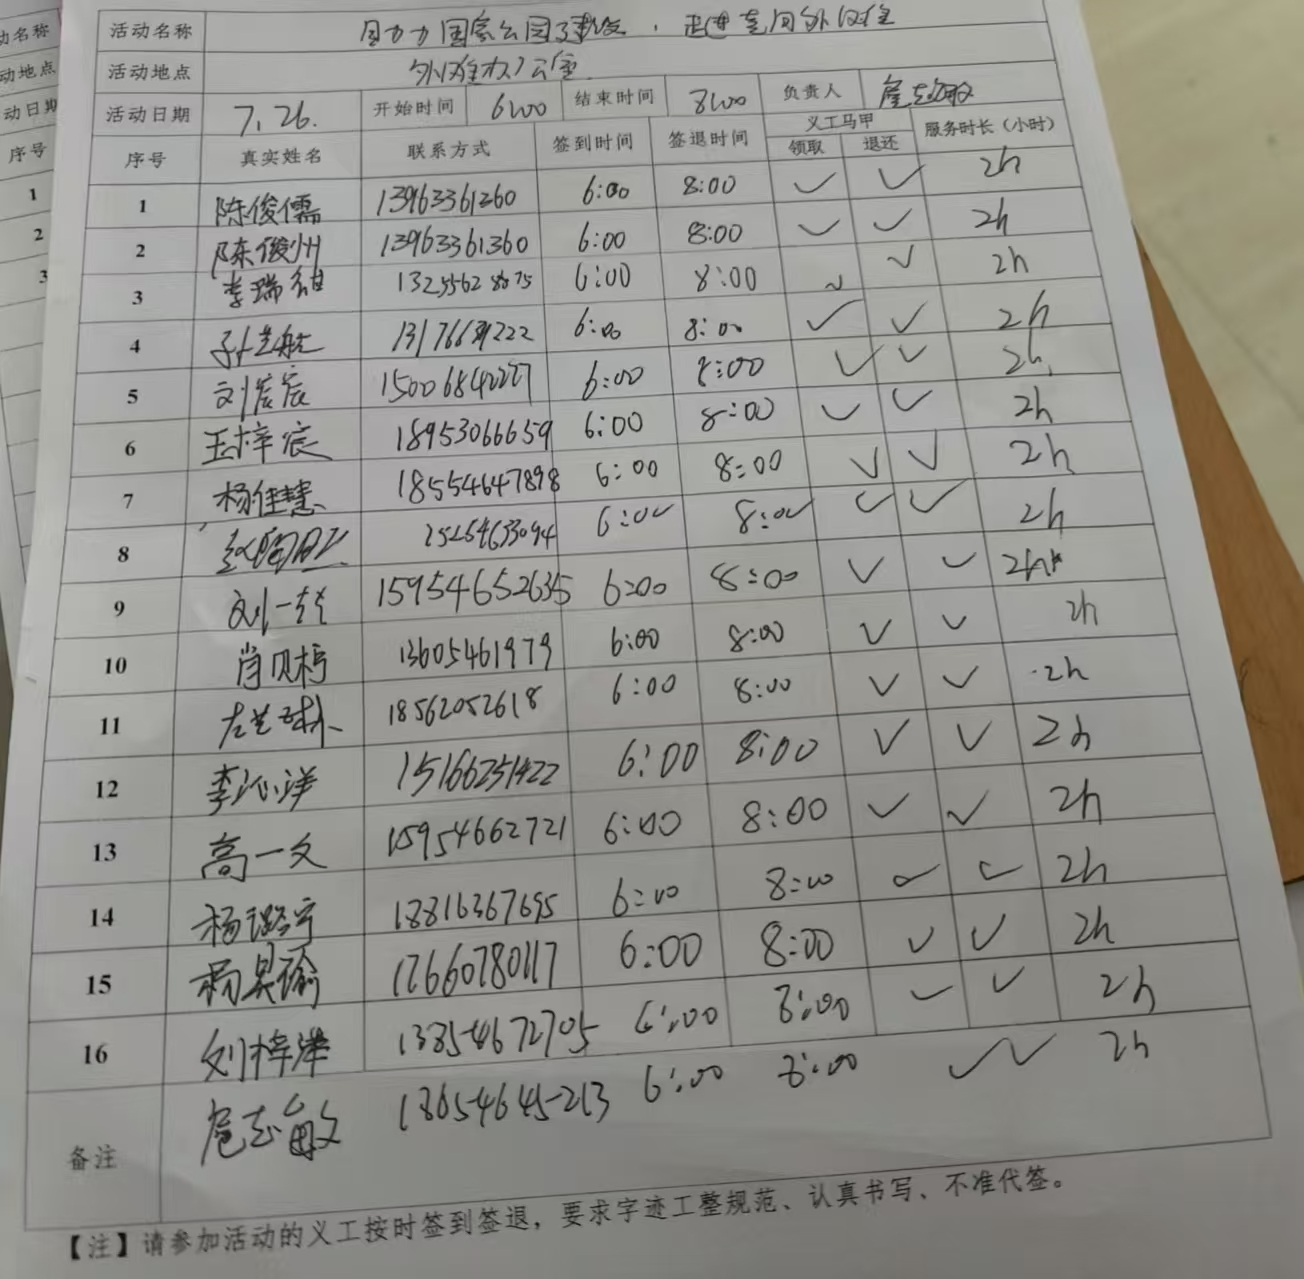 活动名称 助力国家公园建设,走进黄河外滩
活动地点
活动日期 7.26. 开始时间 6:00 结束时间 8:00 负责人 扈志敏
序号 真实姓名 联系方式 签到时间 签退时间 义工马甲 服务时长(小时)
领取 退还
1 陈俊儒 13963361360 6:00 8:00 ✓ ✓ 2h
2 陈俊州 13963361360 6:00 8:00 ✓ ✓ 2h
3 李瑞 6:00 8:00 ✓ ✓ 2h
4 6:00 8:00 ✓ ✓ 2h
5 刘宸宸 6:00 8:00 ✓ ✓ 2h
6 王梓宸 18953066659 6:00 8:00 ✓ ✓ 2h
7 杨佳慧 18554647898 6:00 8:00 ✓ ✓ 2h
8 15254633094 6:00 8:00 ✓ ✓ 2h
9 刘一 15954652635 6:00 8:00 ✓ ✓ 2h
10 肖贝 13605461979 6:00 8:00 ✓ ✓ 2h
11 左艺琳 18562052618 6:00 8:00 ✓ ✓ 2h
12 李沁洋 15166251422 6:00 8:00 ✓ ✓ 2h
13 高一文 15954662721 6:00 8:00 ✓ ✓ 2h
14 杨璐宁 18816367695 6:00 8:00 ✓ ✓ 2h
15 杨昊瑜 17660780117 6:00 8:00 ✓ ✓ 2h
16 刘梓 13854672705 6:00 8:00 ✓ ✓ 2h
备注 扈志敏 18654645213 6:00 8:00 ✓ ✓ 2h
【注】请参加活动的义工按时签到签退,要求字迹工整规范、认真书写、不准代签。